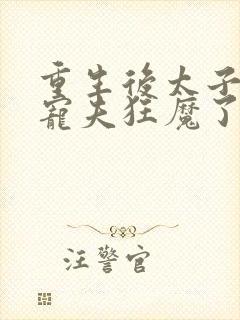 重生後太子
寵夫狂魔了
汪警官